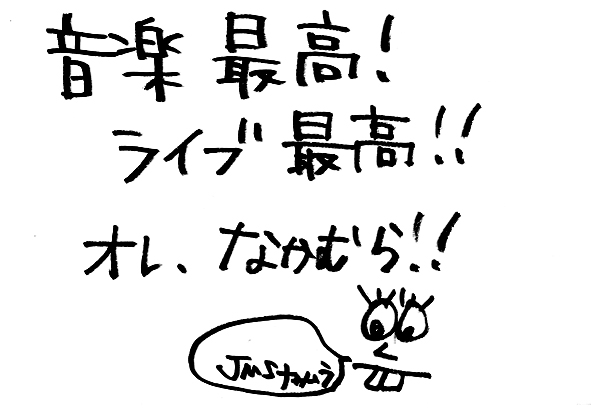 音楽 最高!
ライブ 最高!!
オレ、なかむら!!
JMSナカムラ